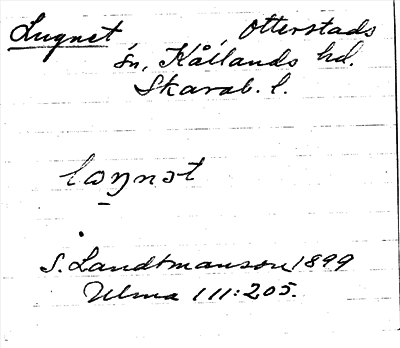 Lugnet, Otterstads
sn, Kållands hd.
Skarab. l.
lɷŋnət
S. Landtmanson 1899
Ulma 111:205.